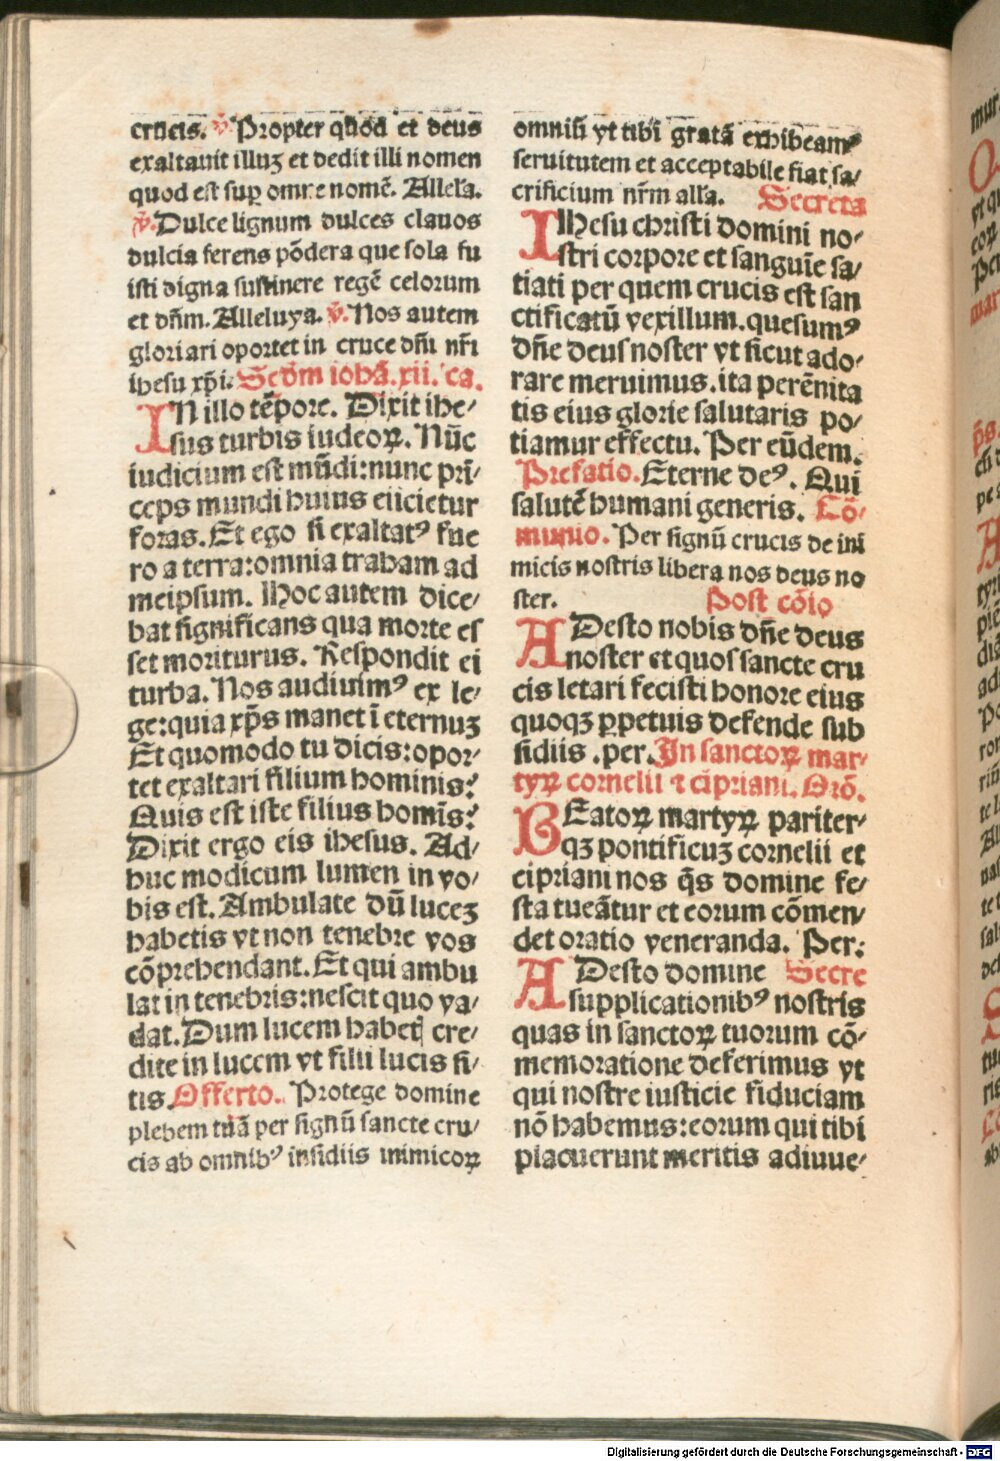 crucis. ℣ Propter quod et deus
exaltauit illuʒ et dedit illi nomen
quod est suꝑ omne nomē. Allela.
℣. Dulce lignum dulces clauos
dulcia ferens pōdera que sola fu
isti digna sustinere regē celorum
et dn̄m. Alleluya. ℣. Nos autem
gloriari oportet in cruce dn̄i nr̄i
ihesu xp̄i. Sedm iohā. xii. ca.
IN illo tēpore. Dixit ihe⸗
sus turbis iudeoꝝ. Nūc
iudicium est mūdi: nunc prī⸗
ceps mundi huius eiicietur
foras. Et ego si exaltatꝰ fue
ro a terra: omnia traham ad
meipsum. Hoc autem dice⸗
bat significans qua morte es
set moriturus. Respondit ei
turba. Nos audiuimꝰ ex le⸗
ge: quia xp̄s manet ī eternuʒ
Et quomodo tu dicis: opor⸗
tet exaltari filium hominis?
Quis est iste filius homīs?
Dixit ergo eis ihesus. Ad⸗
huc modicum lumen in vo⸗
bis est. Ambulate dū luceʒ
habetis vt non tenebre vos
cōprehendant. Et qui ambu
lat in tenebris: nescit quo va⸗
dat. Dum lucem habetꝭ cre⸗
dite in lucem vt filii lucis si⸗
tis. Offerto. Protege domine
plebem tuā per signū sancte cru⸗
cis ab omnibꝰ insidiis inimicoꝝ
omniū vt tibi gratā exhibeamꝰ
seruitutem et acceptabile fiat sa⸗
crificium nr̄m alla. Secreta
IHesu christi domini no⸗
stri corpore et sanguīe sa⸗
tiati per quem crucis est san
ctificatū vexillum. quesumꝰ
dn̄e deus noster vt sicut ado⸗
rare meruimus. ita perēnita
tis eius glorie salutaris po⸗
tiamur effectu. Per eūdem.
Prefatio. Eterne deꝰ. Qui
salutē humani generis. Cō⸗
munio. Per signū crucis de ini
micis nostris libera nos deus no
ster. Post cōio
ADesto nobis dn̄e deus
noster et quos sancte cru
cis letari fecisti honore eius
quoqʒ ꝑpetuis defende sub
sidiis . per. In sanctoꝝ mar⸗
tyꝝ cornelii ⁊ cipriani. Orō.
BEatoꝝ martyꝝ pariter⸗
qʒ pontificuʒ cornelii et
cipriani nos q̄s domine fe⸗
sta tueātur et eorum cōmen⸗
det oratio veneranda. Per:
ADesto domine Secre
supplicationibꝰ nostris
quas in sanctoꝝ tuorum cō⸗
memoratione deferimus vt
qui nostre iusticie fiduciam
nō habemus: eorum qui tibi
placuerunt meritis adiuue⸗
Digitalisierung gefördert durch die Deutsche Forschungsgemeinschaft - DFG